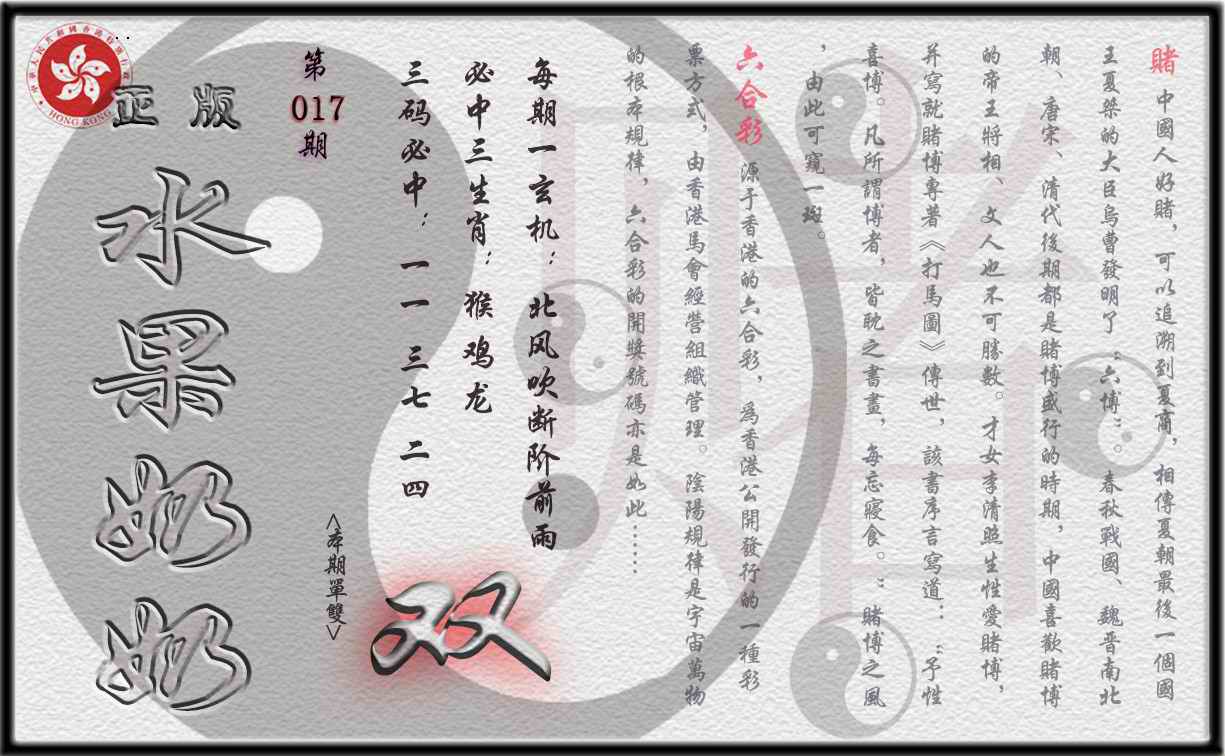 賭 中國人好賭，可以追溯到夏商，相傳夏朝最後一個國
王夏桀的大臣烏曹發明了“六博”。春秋戰國、魏晋南北
朝、唐宋、清代後期都是賭博盛行的時期，中國喜歡賭博
的帝王將相、文人也不可勝數。才女李清照生性愛賭博，
并寫就賭博專著《打馬圖》傳世，該書序言寫道：“予性
喜博。凡所謂博者，皆耽之書畫，每忘寢食。”賭博之風
，由此可窺一斑。
六合彩 源于香港的六合彩，爲香港公開發行的一種彩
票方式，由香港馬會經營組織管理。陰陽規律是宇宙萬物
的根本規律，六合彩的開獎號碼亦是如此……
每期一玄机：北风吹断阶前雨
必中三生肖：猴鸡龙
三码必中：一一 三七 二四
第
017
期
<本期單雙>
双
正版
水果奶奶
HONG KONG